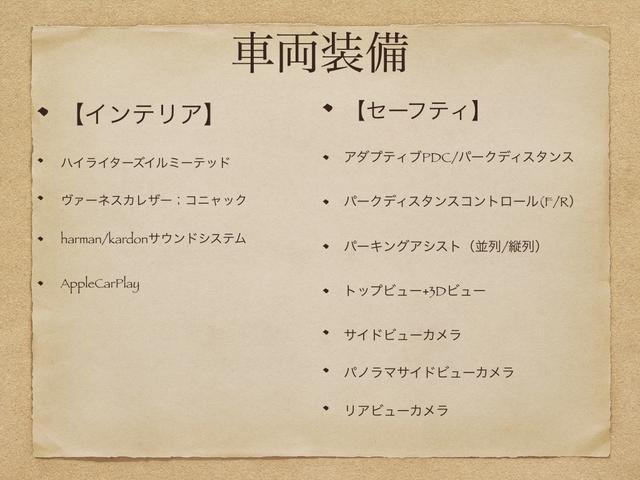 車両装備
【インテリア】
ハイライターズイルミーテッド
ヴァーネスカレザー；コニャック
harman/kardonサウンドシステム
AppleCarPlay
【セーフティ】
アダプティブPDC/パークディスタンス
パークディスタンスコントロール(F/R)
パーキングアシスト（並列/縦列）
トップビュー+3Dビュー
サイドビューカメラ
パノラマサイドビューカメラ
リアビューカメラ